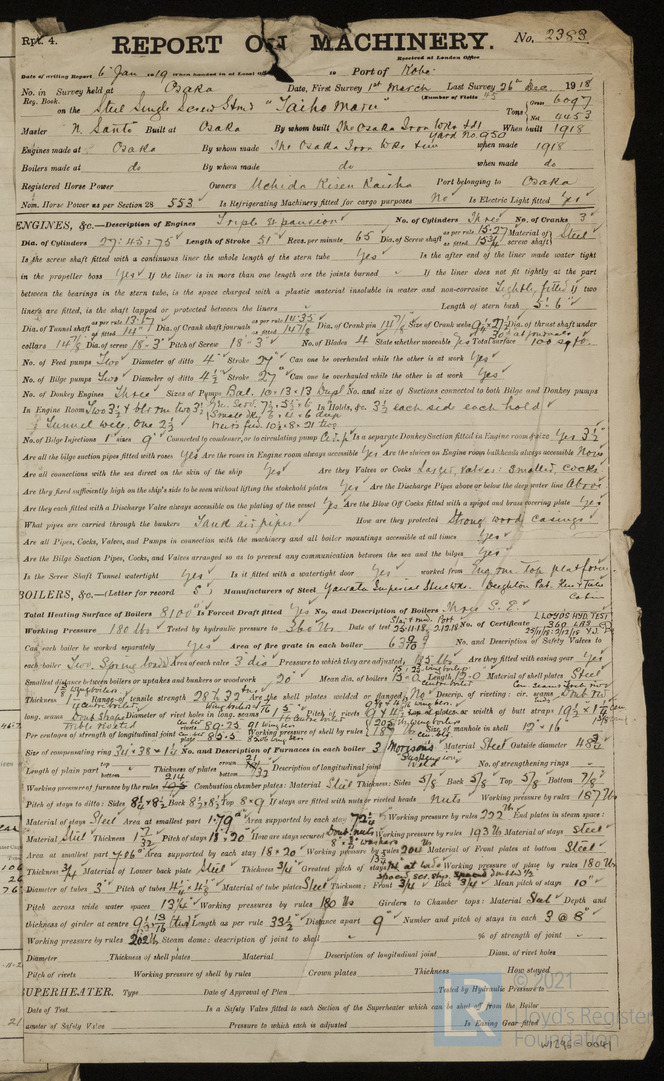 Rpt. 4.
REPORT ON MACHINERY.
No. 2383
Received at London Office
Date of writing Report 6 Jan 1919 When handed in at Local to Port of Kobe
No. in Survey held at Osaka Date, First Survey 1st March Last Survey 26th Dec. 1918
Reg. Book. (Number of Visits 45
on the Steel Single Screw Stmr "Taiho Maru" Tons Gross 6097 Net 4453
Master N. Santo Built at Osaka By whom built The Osaka Iron Wks Ltd Yard No. 950 When built 1918
Engines made at Osaka By whom made The Osaka Iron Wks Lim when made 1918
Boilers made at do By whom made do when made do
Registered Horse Power Owners Uchida Kisen Kaisha Port belonging to Osaka
Nom. Horse Power as per Section 28 553 Is Refrigerating Machinery fitted for cargo purposes No Is Electric Light fitted Yes
ENGINES, &c.—Description of Engines Triple Expansion No. of Cylinders Three No. of Cranks 3
Dia. of Cylinders 27: 45: 75 Length of Stroke 51 Revs. per minute 65 Dia. of Screw shaft as per rule 15.27 as fitted 15 3/4 Material of screw shaft Steel
Is the screw shaft fitted with a continuous liner the whole length of the stern tube Yes Is the after end of the liner made water tight
in the propeller boss Yes If the liner is in more than one length are the joints burned If the liner does not fit tightly at the part
between the bearings in the stern tube, is the space charged with a plastic material insoluble in water and non-corrosive Tightly fitted If two
liners are fitted, is the shaft lapped or protected between the liners Length of stern bush 5'. 6"
Dia. of Tunnel shaft as per rule 13.17 as fitted 14" Dia. of Crank shaft journals as per rule 14.35 as fitted 14 7/8 Dia. of Crank pin 14 7/8 Size of Crank webs Dia. of thrust shaft under
collars 14 7/8 Dia. of screw 18-3" Pitch of Screw 18-3" No. of Blades 4 State whether moveable Yes Total surface 100 sq ft.
No. of Feed pumps Two Diameter of ditto 4" Stroke 27" Can one be overhauled while the other is at work Yes
No. of Bilge pumps Two Diameter of ditto 4 1/2 Stroke 27" Can one be overhauled while the other is at work Yes
No. of Donkey Engines Three Sizes of Pumps Bal. 10×13×13 Dupl No. and size of Suctions connected to both Bilge and Donkey pumps
In Engine Room Two 3 1/2 In Holds, &c. 3 1/2 each side each hold
Tunnel well. One 2 1/2
No. of Bilge Injections 1 sizes 9" Connected to condenser, or to circulating pump Is a separate Donkey Suction fitted in Engine room & size Yes 3 1/2
Are all the bilge suction pipes fitted with roses Yes Are the roses in Engine room always accessible Yes Are the sluices on Engine room bulkheads always accessible None
Are all connections with the sea direct on the skin of the ship Yes Are they Valves or Cocks Larger, Valves: Smaller, Cocks.
Are they fixed sufficiently high on the ship's side to be seen without lifting the stokehold plates Yes Are the Discharge Pipes above or below the deep water line Above
Are they each fitted with a Discharge Valve always accessible on the plating of the vessel Yes Are the Blow Off Cocks fitted with a spigot and brass covering plate Yes
What pipes are carried through the bunkers Tank air pipes How are they protected Strong wood casings
Are all Pipes, Cocks, Valves, and Pumps in connection with the machinery and all boiler mountings accessible at all times Yes
Are the Bilge Suction Pipes, Cocks, and Valves arranged so as to prevent any communication between the sea and the bilges Yes
Is the Screw Shaft Tunnel watertight Yes Is it fitted with a watertight door Yes worked from Eng. rm. top platform.
BOILERS, &c.—(Letter for record S) Manufacturers of Steel Yawata Imperial Steel Wks.
Total Heating Surface of Boilers 8100 Is Forced Draft fitted Yes No. and Description of Boilers Three S. E.
Working Pressure 180 lbs Tested by hydraulic pressure to 360 lbs Date of test 25.11.18 2.12.18 No. of Certificate LLOYDS HYD. TEST 360 LBS
Can each boiler be worked separately Yes Area of fire grate in each boiler No. and Description of Safety Valves to
each boiler Two, Spring loaded Area of each valve 3" dia Pressure to which they are adjusted 185 lbs Are they fitted with easing gear Yes
Smallest distance between boilers or uptakes and bunkers or woodwork 20" Mean dia. of boilers Length Material of shell plates Steel
Thickness Range of tensile strength 28 to 32 Are the shell plates welded or flanged No Descrip. of riveting: cir. seams
long. seams Diameter of rivet holes in long. seams Pitch of rivets Lap of plates or width of butt straps
Per centages of strength of longitudinal joint Working pressure of shell by rules Size of manhole in shell 12" × 16"
Size of compensating ring No. and Description of Furnaces in each boiler 3 Morison's Material Steel Outside diameter
Length of plain part top bottom Thickness of plates crown bottom Description of longitudinal joint No. of strengthening rings
Working pressure of furnace by the rules 214 Combustion chamber plates: Material Steel Thickness: Sides 5/8 Back 5/8 Top 5/8 Bottom 7/8"
Pitch of stays to ditto: Sides 8 1/2 × 8 1/2 Back 8 1/2 × 8 1/2 Top 8×9 If stays are fitted with nuts or riveted heads Nuts Working pressure by rules 187 lbs
Material of stays Steel Area at smallest part 1.79" Area supported by each stay 72 1/4 Working pressure by rules 222 End plates in steam space:
Material Steel Thickness Pitch of stays 18 × 20" How are stays secured Working pressure by rules 193 lbs Material of stays Steel
Area at smallest part 7.06" Area supported by each stay 18×20 Working pressure by rules 204 lbs Material of Front plates at bottom Steel
Thickness 3/4 Material of Lower back plate Steel Thickness 3/4 Greatest pitch of stays Working pressure of plate by rules 180 lbs
Diameter of tubes 3" Pitch of tubes 4 1/4 × 4 1/2 Material of tube plates Steel Thickness: Front 3/4 Back 3/4 Mean pitch of stays 10"
Pitch across wide water spaces 13 1/2" Working pressures by rules 180 lbs Girders to Chamber tops: Material Steel Depth and
thickness of girder at centre Length as per rule 33 1/2 Distance apart 9" Number and pitch of stays in each 3 @ 8"
Working pressure by rules 202 lb Steam dome: description of joint to shell % of strength of joint
Diameter Thickness of shell plates Material Description of longitudinal joint Diam. of rivet holes
Pitch of rivets Working pressure of shell by rules Crown plates Thickness How stayed
SUPERHEATER. Type Date of Approval of Plan Tested by Hydraulic Pressure to
Date of Test Is a Safety Valve fitted to each Section of the Superheater which can be shut off from the Boiler
ameter of Safety Valve Pressure to which each is adjusted Is Easing Gear fitted
© 2021
Lloyd's Register
Foundation
W1296-0041